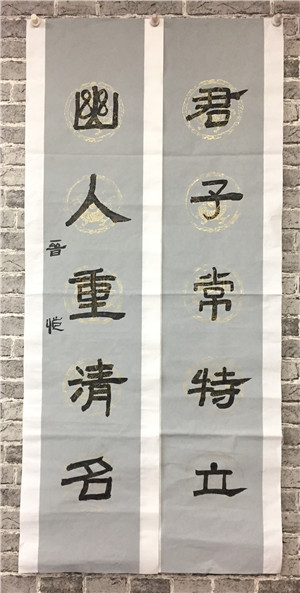 君子常特立
幽人重清名
晉愷